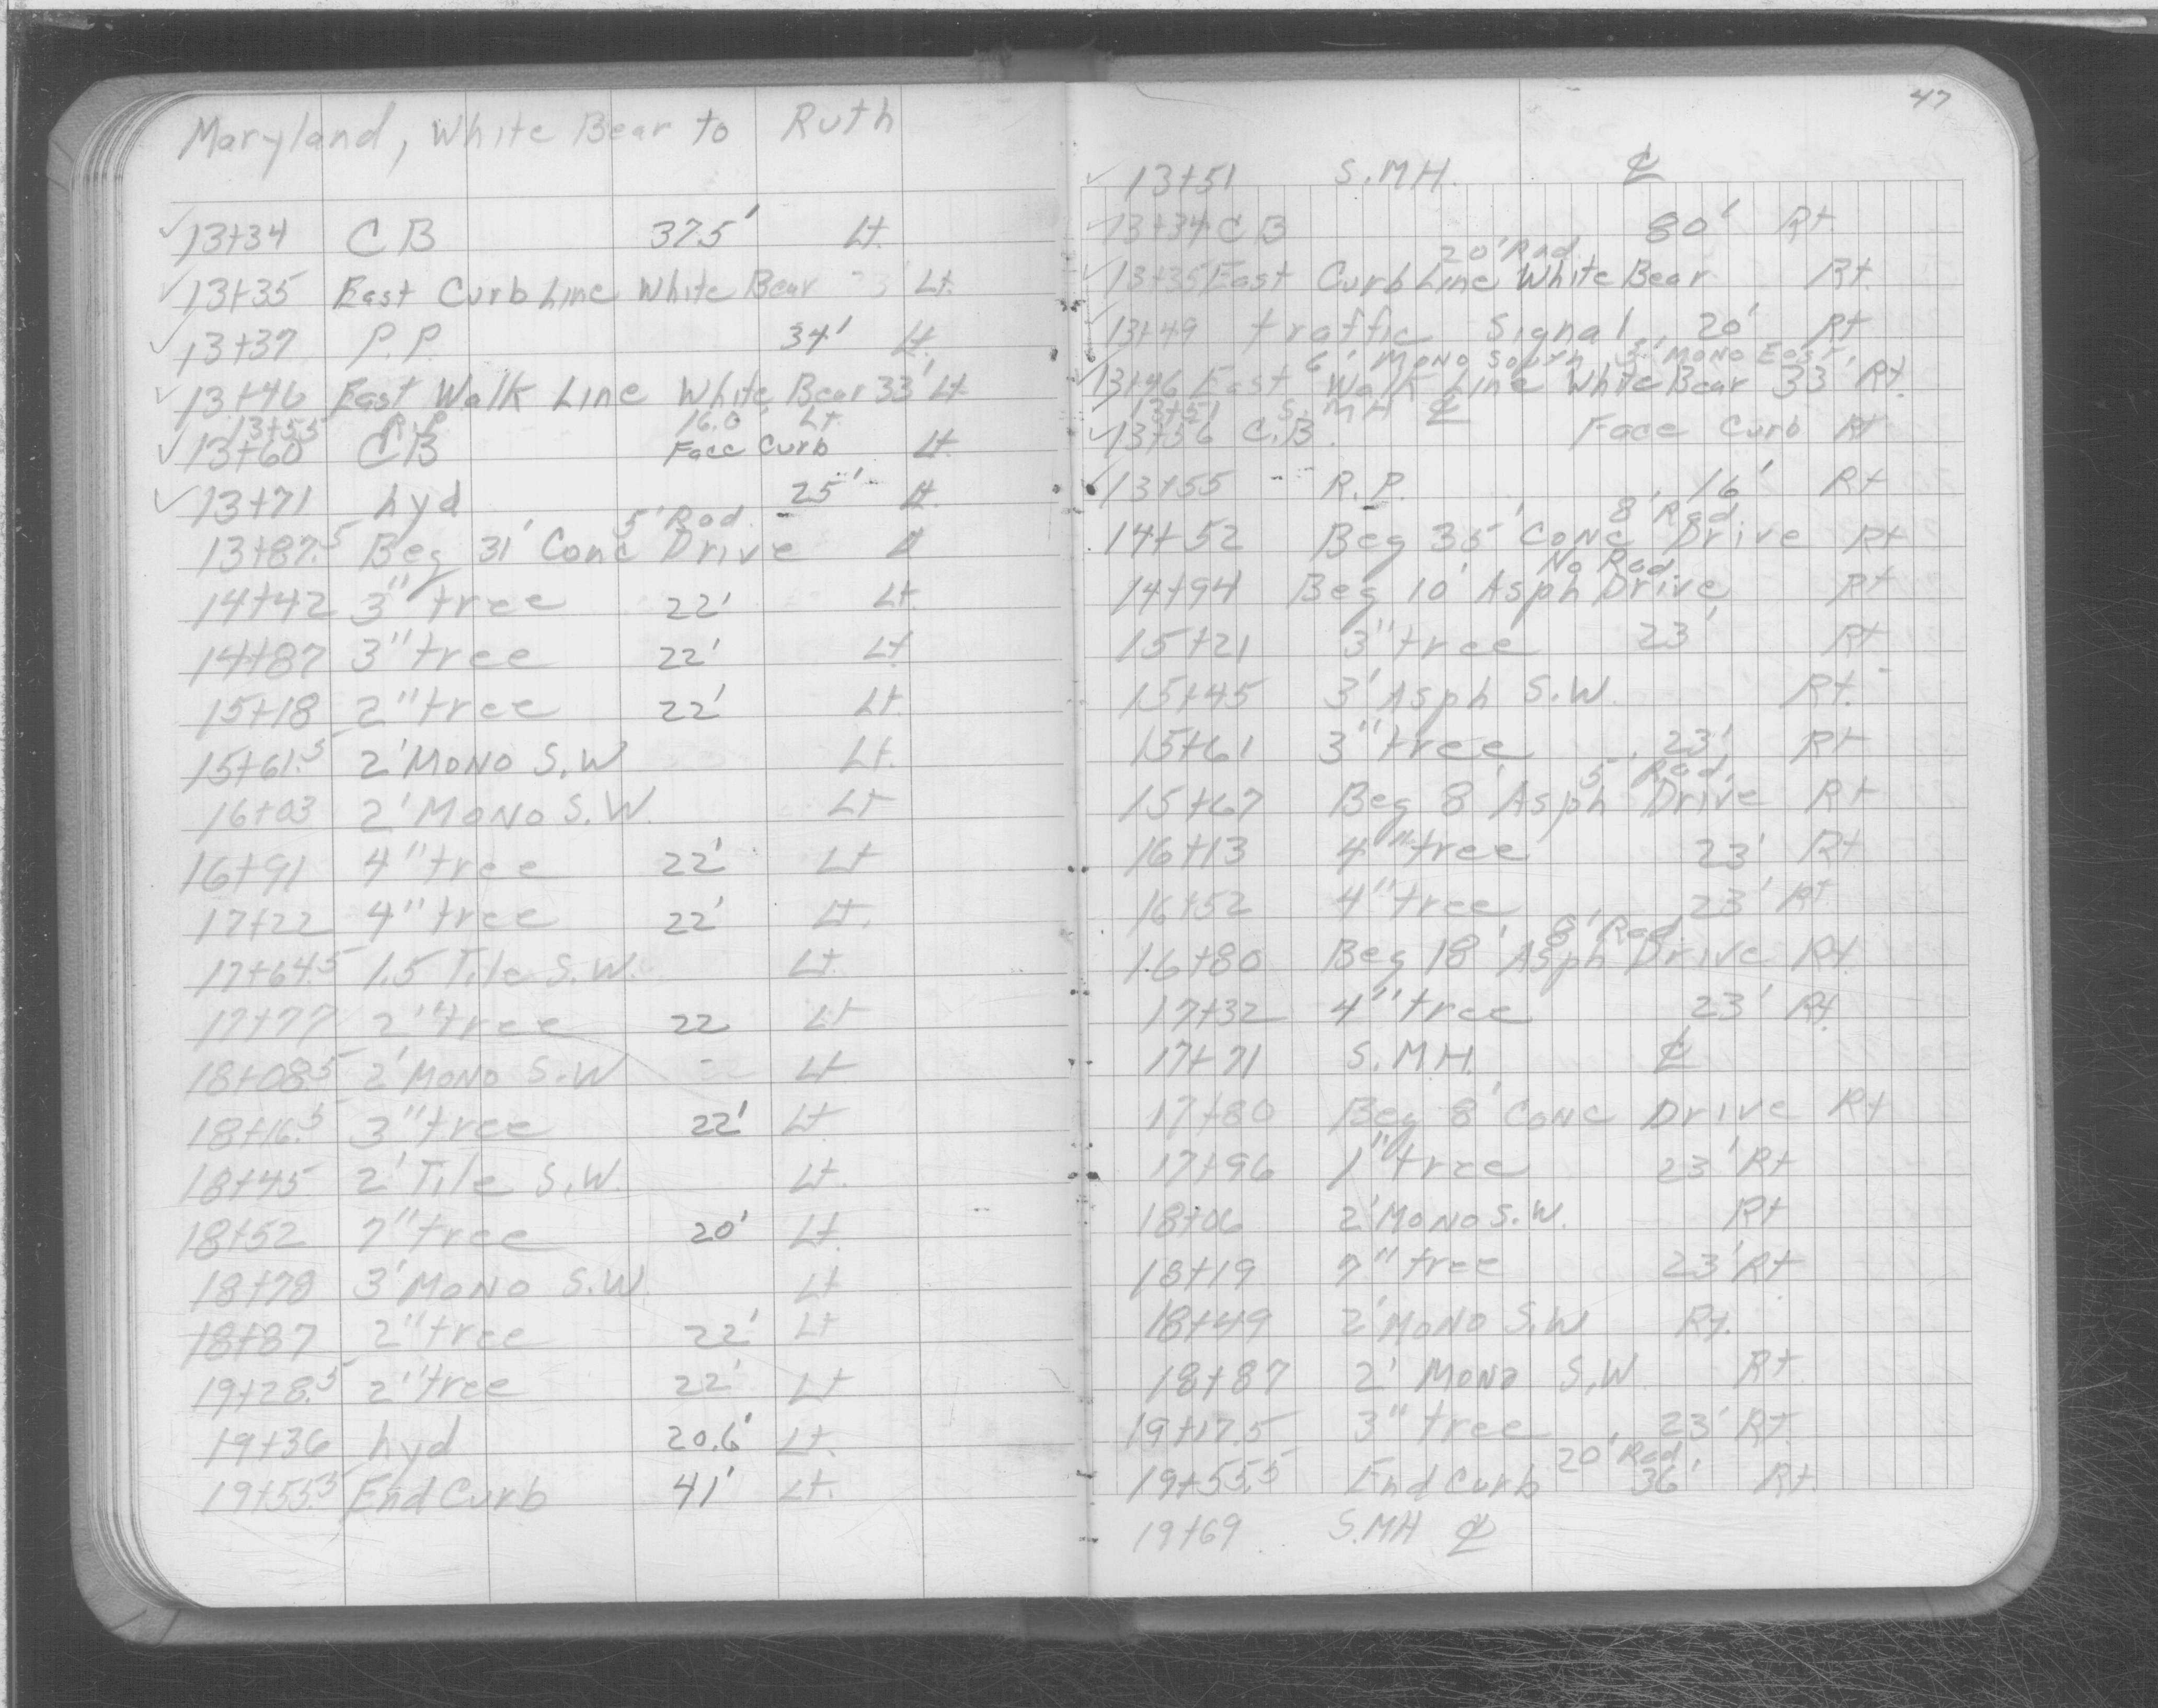 Maryland, White Bear to Ruth
✓ 13+34 CB 37.5' Lt.
✓ 13+35 East Curb Line White Bear Lt.
✓ 13+37 P.P. 34' Lt.
✓ 13+46 East Walk Line White Bear 33' Lt
13+55 P.P. 16.0' Lt.
✓ 13+60 CB Face Curb Lt.
✓ 13+71 hyd 25' Lt.
5' Rad.
13+87.5 Beg 31' Conc Drive Lt
14+42 3" tree 22' Lt.
14+87 3" tree 22' Lt.
15+18 2" tree 22' Lt.
15+61.5 2' Mono S.W Lt.
16+03 2' Mono S.W. Lt
16+91 4" tree 22' Lt
17+22 4" tree 22' Lt.
17+64.5 1.5 Tile S.W. Lt.
17+77 2" tree 22 Lt
18+08.5 2' Mono S.W Lt
18+16.5 3" tree 22' Lt.
18+45 2' Tile S.W. Lt.
18+52 7" tree 20' Lt.
18+78 3' Mono S.W. Lt
18+87 2" tree 22' Lt
19+28.5 2" tree 22' Lt
19+36 hyd 20.6' Lt.
19+55.5 End Curb 41' Lt.
47
✓ 13+51 S.MH. ℄
✓ 13+34 CB 80' Rt.
20' Rad.
✓ 13+35 East Curb Line White Bear Rt.
✓ 13+49 traffic Signal 20' Rt
6' Mono South, 3' Mono East,
✓ 13+46 East Walk Line White Bear 33' Rt.
13+51 S. MH ℄
✓ 13+56 C.B. Face Curb Rt
✓ 13+55 P.P. 16' Rt
8' Rad.
14+52 Beg 35' Conc Drive Rt
No Rad.
14+94 Beg 10' Asph Drive Rt
15+21 3" tree 23' Rt
15+45 3' Asph S.W. Rt.
15+61 3" tree 23' Rt
5' Rad.
15+67 Beg 8' Asph Drive Rt
16+13 4" tree 23' Rt
16+52 4" tree 23' Rt
8' Rad.
16+80 Beg 18' Asph Drive Rt.
17+32 4" tree 23' Rt.
17+71 S.M.H. ℄
17+80 Beg 8' Conc Drive Rt
17+96 1" tree 23' Rt
18+06 2' Mono S.W. Rt
18+19 7" tree 23' Rt
18+49 2' Mono S.W Rt.
18+87 2' Mono S.W. Rt.
19+17.5 3" tree 23' Rt.
20' Rad.
19+55.5 End Curb 36' Rt.
19+69 S.MH ℄